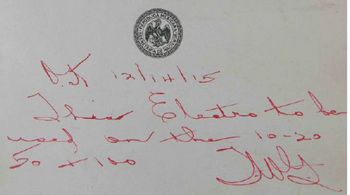 O.K 12/14/15
This Electro to be
used on the 10-20
50 + 100